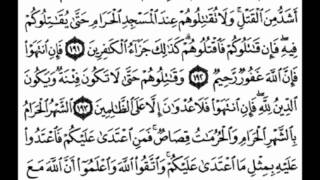 أَشَدُّ مِنَ ٱلْقَتْلِ ۚ وَلَا تُقَٰتِلُوهُمْ عِندَ ٱلْمَسْجِدِ ٱلْحَرَامِ حَتَّىٰ يُقَٰتِلُوكُمْ
فِيهِ ۖ فَإِن قَٰتَلُوكُمْ فَٱقْتُلُوهُمْ ۗ كَذَٰلِكَ جَزَآءُ ٱلْكَٰفِرِينَ ١٩١ فَإِنِ ٱنتَهَوْا۟
فَإِنَّ ٱللَّهَ غَفُورٌ رَّحِيمٌ ١٩٢ وَقَٰتِلُوهُمْ حَتَّىٰ لَا تَكُونَ فِتْنَةٌ وَيَكُونَ
ٱلدِّينُ لِلَّهِ ۖ فَإِنِ ٱنتَهَوْا۟ فَلَا عُدْوَٰنَ إِلَّا عَلَى ٱلظَّٰلِمِينَ ١٩٣ ٱلشَّهْرُ ٱلْحَرَامُ
بِٱلشَّهْرِ ٱلْحَرَامِ وَٱلْحُرُمَٰتُ قِصَاصٌ ۚ فَمَنِ ٱعْتَدَىٰ عَلَيْكُمْ فَٱعْتَدُوا۟
عَلَيْهِ بِمِثْلِ مَا ٱعْتَدَىٰ عَلَيْكُمْ ۚ وَٱتَّقُوا۟ ٱللَّهَ وَٱعْلَمُوٓا۟ أَنَّ ٱللَّهَ مَعَ